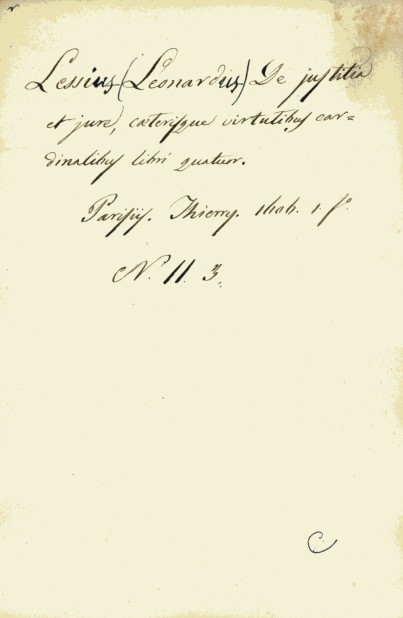 Lessius (Leonardus) De justitia
et jure, cæterisque virtutibus car=
dinalibus libri quatuor.
Parisiis. Thierry. 1606. 1 fº.
N. 11 3.
C